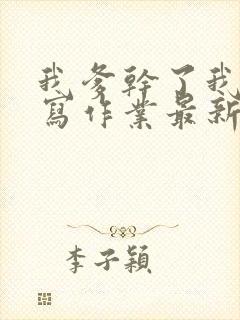 我爹幹了我
寫作業最新
李子穎